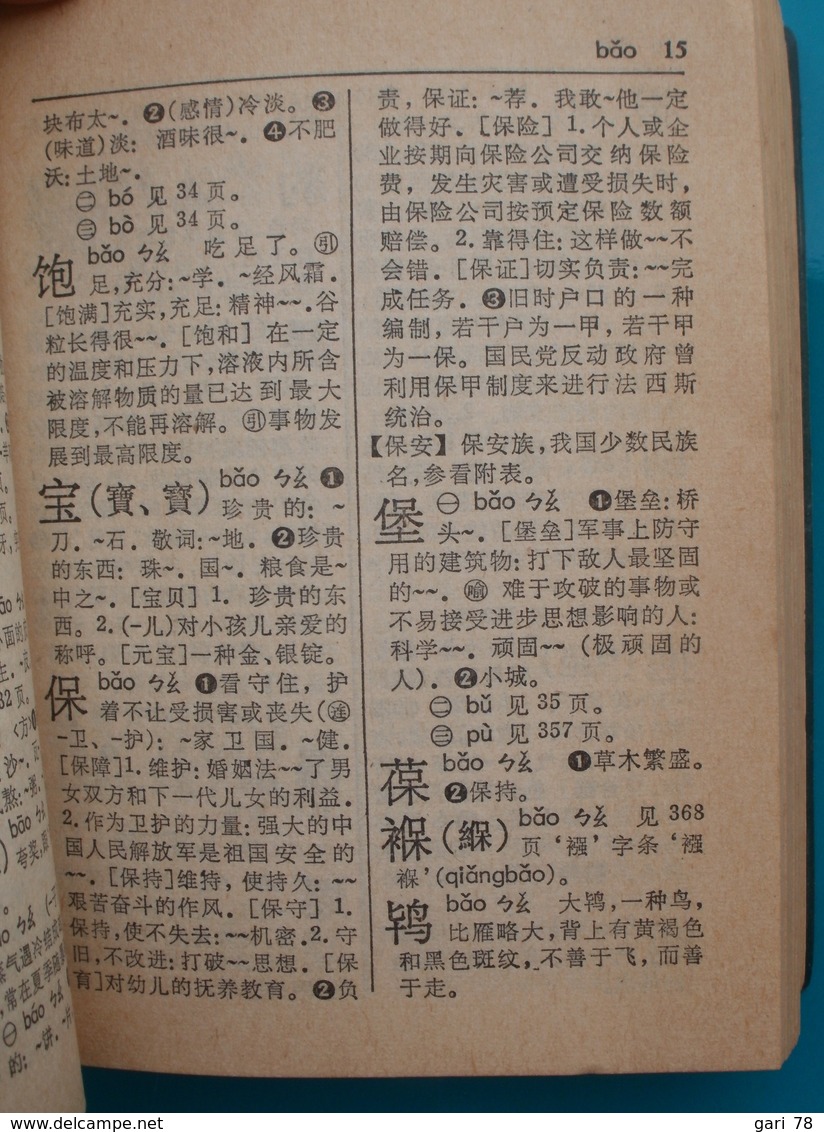 bǎo 15
块布太~. ❷(感情)冷淡。❸
(味道)淡: 酒味很~. ❹不肥
沃: 土地~.
㊀ bó 见 34 页。
㊂ bò 见 34 页。
饱 bǎo ㄅㄠˇ 吃足了。㊁引
足,充分: ~学. ~经风霜.
[饱满]充实,充足: 精神~~. 谷
粒长得很~~. [饱和] 在一定
的温度和压力下,溶液内所含
被溶解物质的量已达到最大
限度,不能再溶解。㊁引事物发
展到最高限度。
宝(寶、寳) bǎo ㄅㄠˇ ❶
珍贵的: ~
刀. ~石. 敬词: ~地. ❷珍贵
的东西: 珠~. 国~. 粮食是~
中之~. [宝贝] 1. 珍贵的东
西。2. (-儿)对小孩儿亲爱的
称呼。[元宝]一种金、银锭。
保 bǎo ㄅㄠˇ ❶看守住,护
着不让受损害或丧失(连
-卫、-护): ~家卫国. ~健.
[保障]1. 维护: 婚姻法~~了男
女双方和下一代儿女的利益.
2. 作为卫护的力量: 强大的中
国人民解放军是祖国安全的
~~. [保持]维持,使持久: ~~
艰苦奋斗的作风. [保守] 1.
保持,使不失去: ~~机密. 2. 守
旧,不改进: 打破~~思想. [保
育]对幼儿的抚养教育。❷负
责,保证: ~荐. 我敢~他一定
做得好. [保险] 1. 个人或企
业按期向保险公司交纳保险
费,发生灾害或遭受损失时,
由保险公司按预定保险数额
赔偿。2. 靠得住: 这样做~~不
会错. [保证]切实负责: ~~完
成任务. ❸旧时户口的一种
编制,若干户为一甲,若干甲
为一保。国民党反动政府曾
利用保甲制度来进行法西斯
统治。
【保安】保安族,我国少数民族
名,参看附表。
堡 ㊀ bǎo ㄅㄠˇ ❶堡垒: 桥
头~. [堡垒]军事上防守
用的建筑物: 打下敌人最坚固
的~~. 喻 难于攻破的事物或
不易接受进步思想影响的人:
科学~~. 顽固~~ (极顽固的
人). ❷小城。
㊁ bǔ 见 35 页。
㊂ pù 见 357 页。
葆 bǎo ㄅㄠˇ ❶草木繁盛。
❷保持。
褓(緥) bǎo ㄅㄠˇ 见 368
页‘襁’字条‘襁
褓’(qiǎngbǎo)。
鸨 bǎo ㄅㄠˇ 大鸨,一种鸟,
比雁略大,背上有黄褐色
和黑色斑纹,不善于飞,而善
于走。
gari 78